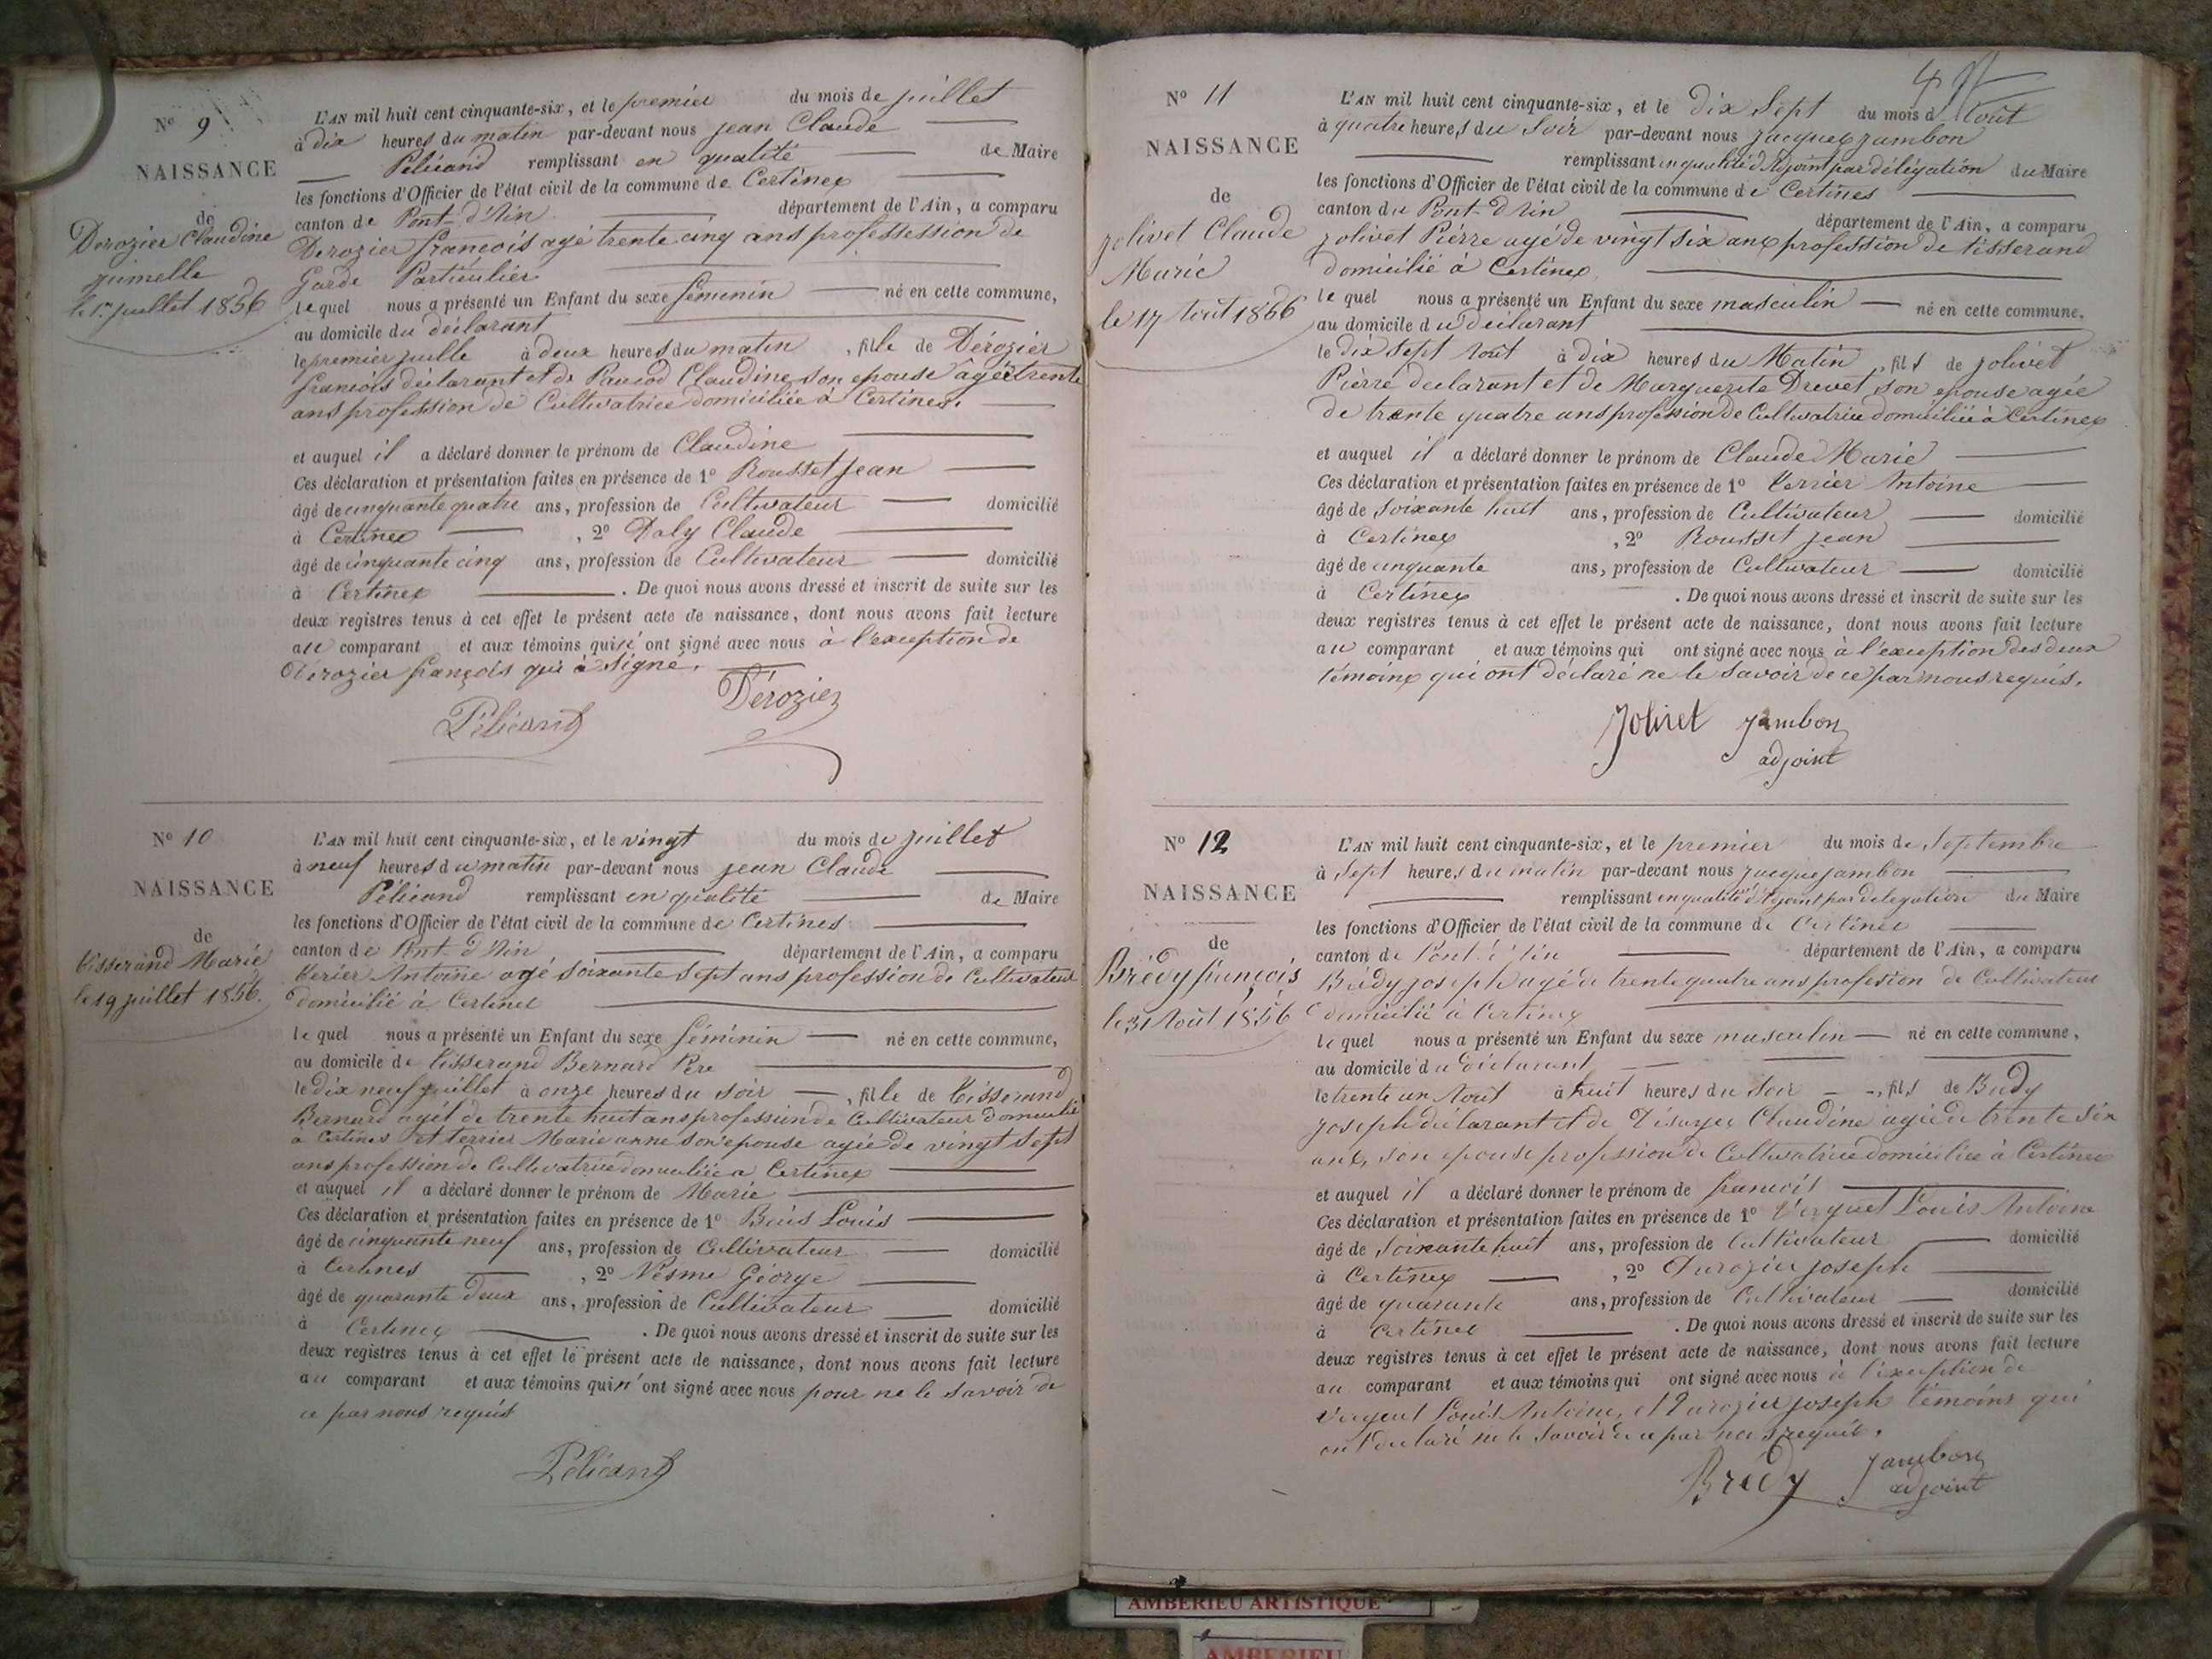 Nº 9
NAISSANCE
de
Derozier Claudine
jumelle
le 1er juillet 1856
L'AN mil huit cent cinquante-six, et le premier du mois de juillet
à dix heures du matin par-devant nous jean Claude
Pélicand remplissant en qualité de Maire
les fonctions d'Officier de l'état civil de la commune de Certines
canton de Pont-d'Ain département de l'Ain, a comparu
Derozier francois agé trente cinq ans professession de
Garde Particulier
lequel nous a présenté un Enfant du sexe féminin né en cette commune,
au domicile du déclarant
le premier juille à deux heures du matin, fille de Dérozier
francois déclarant et de Claudine son epouse agée trente
ans profession de Cultivatrice domiciliée à Certines.
et auquel il a déclaré donner le prénom de Claudine
Ces déclaration et présentation faites en présence de 1º Rousset jean
âgé de cinquante quatre ans, profession de Cultivateur domicilié
à Certines, 2º Daly Claude
âgé de cinquante cinq ans, profession de Cultivateur domicilié
à Certines. De quoi nous avons dressé et inscrit de suite sur les
deux registres tenus à cet effet le présent acte de naissance, dont nous avons fait lecture
au comparant et aux témoins qui n'ont signé avec nous à l'exception de
Dérozier françois qui à signé.
Pélicand Dérozier
Nº 10
NAISSANCE
de
tisserand Marie
le 19 juillet 1856.
L'AN mil huit cent cinquante-six, et le vingt du mois de juillet
à neuf heures du matin par-devant nous jean Claude
Pélicand remplissant en qualité de Maire
les fonctions d'Officier de l'état civil de la commune de Certines
canton de Pont-d'Ain département de l'Ain, a comparu
Antoine agé soixante sept ans profession de Cultivateur
domicilié à Certines
lequel nous a présenté un Enfant du sexe féminin né en cette commune,
au domicile de tisserand Bernard Père
le dix neuf juillet à onze heures du soir, fille de tisserand
Bernard agét de trente huit ans profession de Cultivateur domicilié
a Certines et terrier Marie anne son epouse agée de vingt sept
ans profession de Cultivatrice domiciliée a Certines
et auquel il a déclaré donner le prénom de Marie
Ces déclaration et présentation faites en présence de 1º Louis
âgé de cinquante neuf ans, profession de Cultivateur domicilié
à Certines, 2º Nesme Géorge
âgé de quarante deux ans, profession de Cultivateur domicilié
à Certines. De quoi nous avons dressé et inscrit de suite sur les
deux registres tenus à cet effet le présent acte de naissance, dont nous avons fait lecture
au comparant et aux témoins qui n'ont signé avec nous pour ne le savoir de
ce par nous requis
Pélicand
4
Nº 11
NAISSANCE
de
jolivet Claude
Marie
le 17 Aout 1856
L'AN mil huit cent cinquante-six, et le dix sept du mois d'Aout
à quatre heures du Soir par-devant nous jacques jambon
remplissant en qualité d'Adjoint par délégation du Maire
les fonctions d'Officier de l'état civil de la commune de Certines
canton du Pont-d'Ain département de l'Ain, a comparu
jolivet Pièrre agé de vingt six ans profession de tisserand
domicilié à Certines
lequel nous a présenté un Enfant du sexe masculin né en cette commune,
au domicile du déclarant
le dix sept Aout à dix heures du Matin, fils de jolivet
Pièrre declarant et de Marguerite Drevet son epouse agée
de trente quatre ans profession de Cultivatrice domiciliée à Certines
et auquel il a déclaré donner le prénom de Claude Marie
Ces déclaration et présentation faites en présence de 1º Antoine
âgé de Soixante huit ans, profession de Cultivateur domicilié
à Certines, 2º Rousset jean
âgé de cinquante ans, profession de Cultivateur domicilié
à Certines. De quoi nous avons dressé et inscrit de suite sur les
deux registres tenus à cet effet le présent acte de naissance, dont nous avons fait lecture
au comparant et aux témoins qui ont signé avec nous à l'exception des deux
témoins qui ont déclaré ne le savoir de ce par nous requis.
Jolivet jambon
adjoint
Nº 12
NAISSANCE
de
Brédy françois
le 31 Août 1856
L'AN mil huit cent cinquante-six, et le premier du mois de Septembre
à sept heures du matin par-devant nous jacque jambon
remplissant en qualité d'Adjoint par delegation du Maire
les fonctions d'Officier de l'état civil de la commune de Certines
canton de Pont d'Ain département de l'Ain, a comparu
Brédy joseph agé de trente quatre ans profession de Cultivateur
domicilié à Certines
lequel nous a présenté un Enfant du sexe masculin né en cette commune,
au domicile du déclarant
le trente un Aout à huit heures du Soir, fils de Brédy
joseph déclarant et de Claudine agée de trente six
ans, son epouse profession de Cultivatrice domiciliée à Certines
et auquel il a déclaré donner le prénom de francois
Ces déclaration et présentation faites en présence de 1º Louis Antoine
âgé de Soixante huit ans, profession de Cultivateur domicilié
à Certines, 2º Durozier joseph
âgé de quarante ans, profession de Cultivateur domicilié
à Certines. De quoi nous avons dressé et inscrit de suite sur les
deux registres tenus à cet effet le présent acte de naissance, dont nous avons fait lecture
au comparant et aux témoins qui ont signé avec nous à l'exception de
Louis Antoine, et Durozier joseph témoins qui
ont declaré ne le savoir de ce par nous requis.
Brédy Jambon
adjoint
AMBERIEU ARTISTIQUE
AMBERIEU